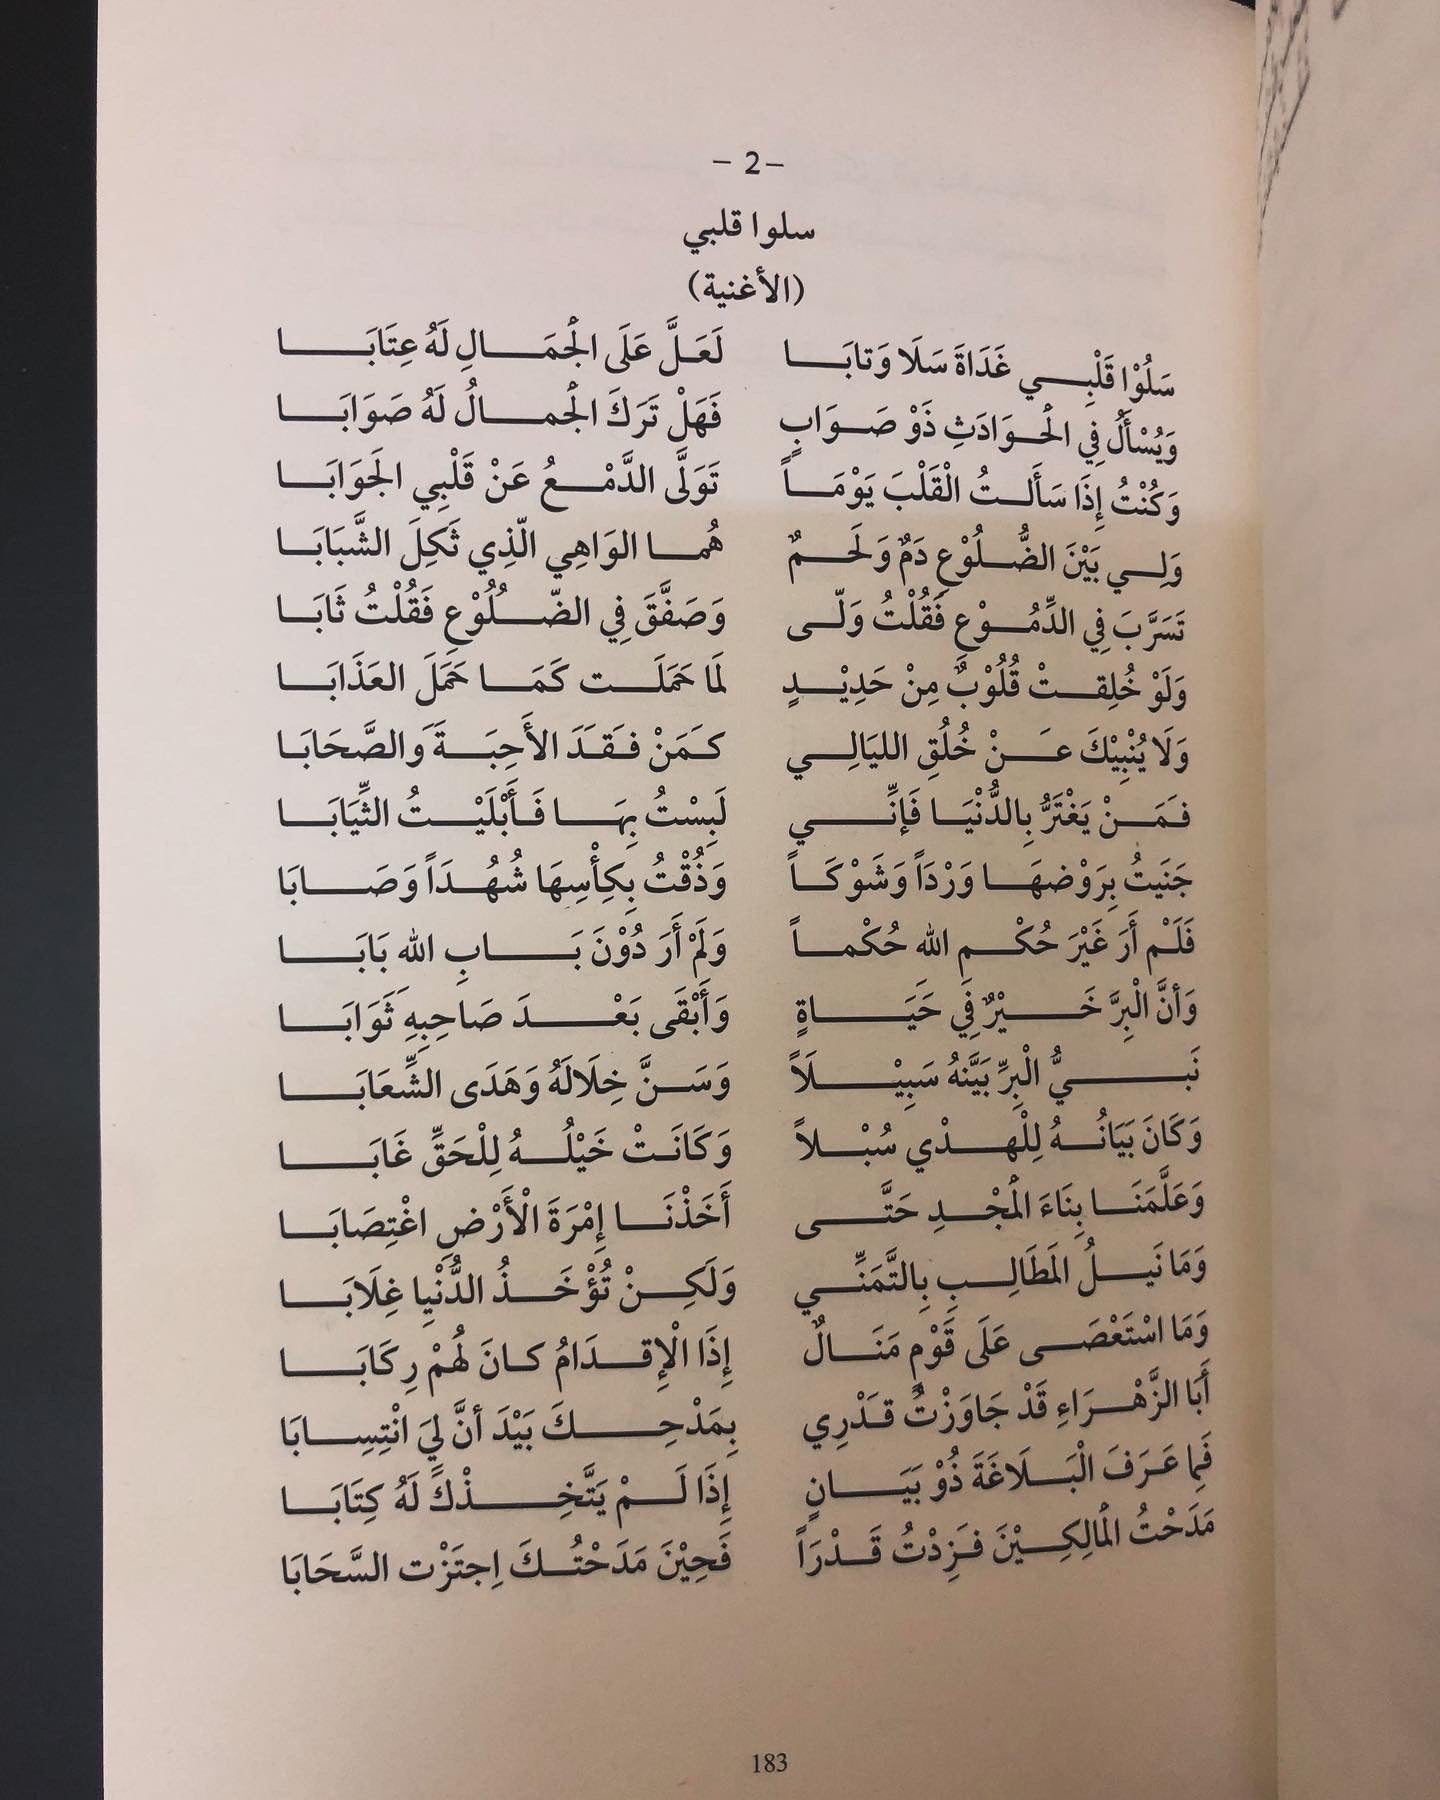 – 2–
سلوا قلبي
(الأغنية)
سَلُوْا قَلْبِي غَدَاةَ سَلَا وَتابَا لَعَلَّ عَلَى الْجَمَالِ لَهُ عِتَابَا
وَيُسْأَلُ فِي الْحَوَادَثِ ذَوْ صَوَابٍ فَهَلْ تَرَكَ الْجمالُ لَهُ صَوَابَا
وَكُنْتُ إِذَا سَأَلتُ الْقَلْبَ يَوْمَاً تَوَلَّى الدَّمْعُ عَنْ قَلْبِي الجَوَابَا
وَلِي بَيْنَ الضُّلُوْعِ دَمٌ وَلَحمٌ هُما الوَاهِي الّذِي ثَكِلَ الشَّبَابَا
تَسَرَّبَ فِي الدِّمُوْعِ فَقُلْتُ وَلّى وَصَفَّقَ فِي الضّلُوْعِ فَقُلْتُ ثَابَا
وَلَوْ خُلِقتْ قُلُوْبٌ مِنْ حَدِيْدٍ لَمَا حَمَلَت كَمَا حَمَلَ العَذَابَا
وَلَا يُنْبِيْكَ عَنْ خُلُقِ الليَالِي كمَنْ فقَدَ الأَحِبَةَ وَالصَّحَابَا
فمَنْ يَغْتَرُّ بِالدُّنْيَا فَإنِّي لَبِسْتُ بِهَا فَأَبْلَيْتُ الثِّيَابَا
جَنَيتُ بِرَوْضهَا وَرْدَاً وَشَوْكَاً وَذُقْتُ بِكِأْسِهَا شُهُدَاً وَصَابَا
فَلَمْ أَرَ غَيْرَ حُكْمِ الله حُكْماً وَلَمْ أَرَ دُوْنَ بَابِ الله بَابَا
وَأنَّ الْبِرَّ خَيْرٌ فِي حَيَاةٍ وَأَبْقَى بَعْدَ صَاحِبِهِ ثَوَابَا
نَبيُّ الْبِرِّ بَيَّنهُ سَبِيْلَاً وَسَنَّ خِلَالَهُ وَهَدَى الشِّعَابَا
وَكَانَ بَيَانُهُ لِلْهدْي سُبْلاً وَكَانَتْ خَيْلُهُ لِلْحَقِّ غَابَا
وَعَلَّمَنَا بِنَاءَ الْمَجْدِ حَتَّى أَخَذْنَا إِمْرَةَ الْأَرْضِ اغْتِصَابَا
وَمَا نَيلُ المَطَالِبِ بِالتَّمَنِّي وَلَكِنْ تُؤْخَذُ الدُّنْيا غِلَابَا
وَمَا اسْتَعْصَى عَلَى قَوْمٍ مَنَالٌ إِذَا الْإِقدَامُ كانَ لَهُمْ رِكَابَا
أَبَا الزَّهْرَاءِ قَدْ جَاوَزْتُ قدْرِي بِمَدْحِكَ بَيْدَ أنَّ لِيَ انْتِسِابَا
فَما عَرَفَ الْبَلَاغَةَ ذُوْ بَيَانٍ إِذَا لَمْ يَتَّخِذْكَ لَهُ كِتَابَا
مَدَحْتُ الْمالِكِيْنَ فزِدْتُ قَدْرَاً فَحِيْنَ مَدَحْتُكَ اِجتَزْت السَّحَابَا
183